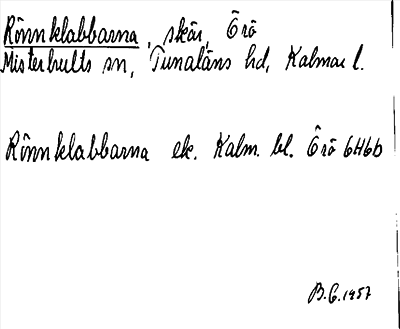 Rönnklabbarna, skär, Örö
Misterhults sn, Tunaläns hd, Kalmar l.
Rönnklabbarna ek. Kalm. bl. Örö 6H6b
B.C. 1957